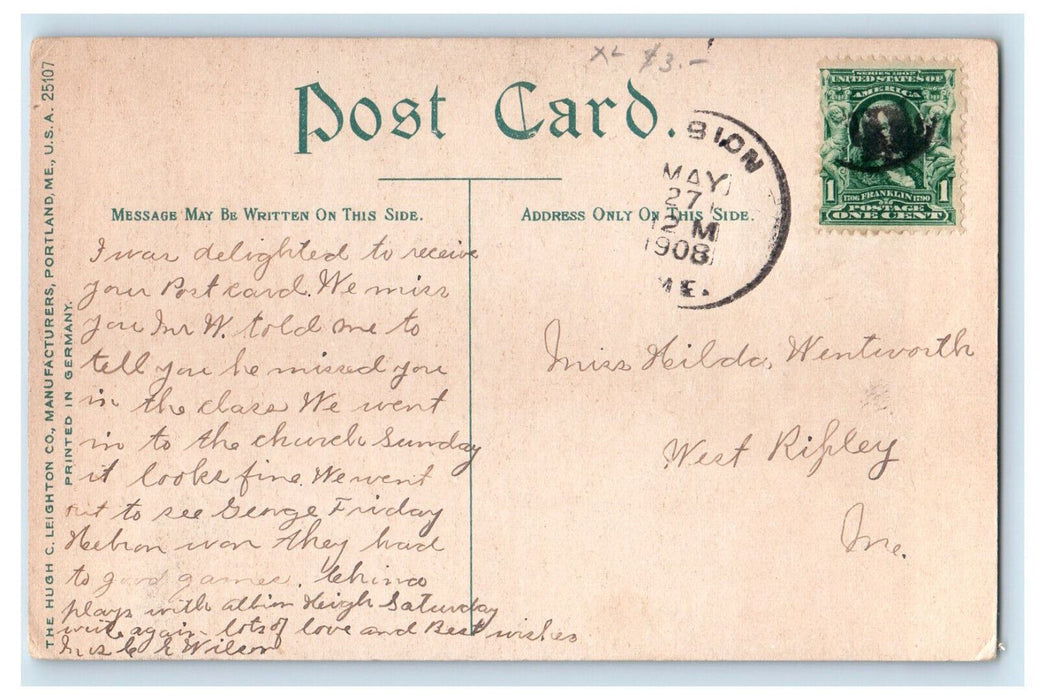 XL $3.-
Post Card.
MESSAGE MAY BE WRITTEN ON THIS SIDE.
ADDRESS ONLY ON THIS SIDE.
THE HUGH C. LEIGHTON CO., MANUFACTURERS, PORTLAND, ME., U.S.A. 25107
PRINTED IN GERMANY.
I was delighted to receive
your Post card. We miss
you Mr W. told me to
tell you he missed you
in the class We went
in to the church Sunday
it looks fine. We went
out to see George Friday
Hebron won they had
to good games. China
plays with albion Heigh Saturday
write again lots of love and Best wishes
Mrs C E Wilson
BION
MAY
27
12 M
1908
ME.
SERIES 1902
UNITED STATES OF
AMERICA
1 1706 FRANKLIN 1790 1
POSTAGE
ONE CENT
Miss Hilda, Wentworth
West Ripley
Me.